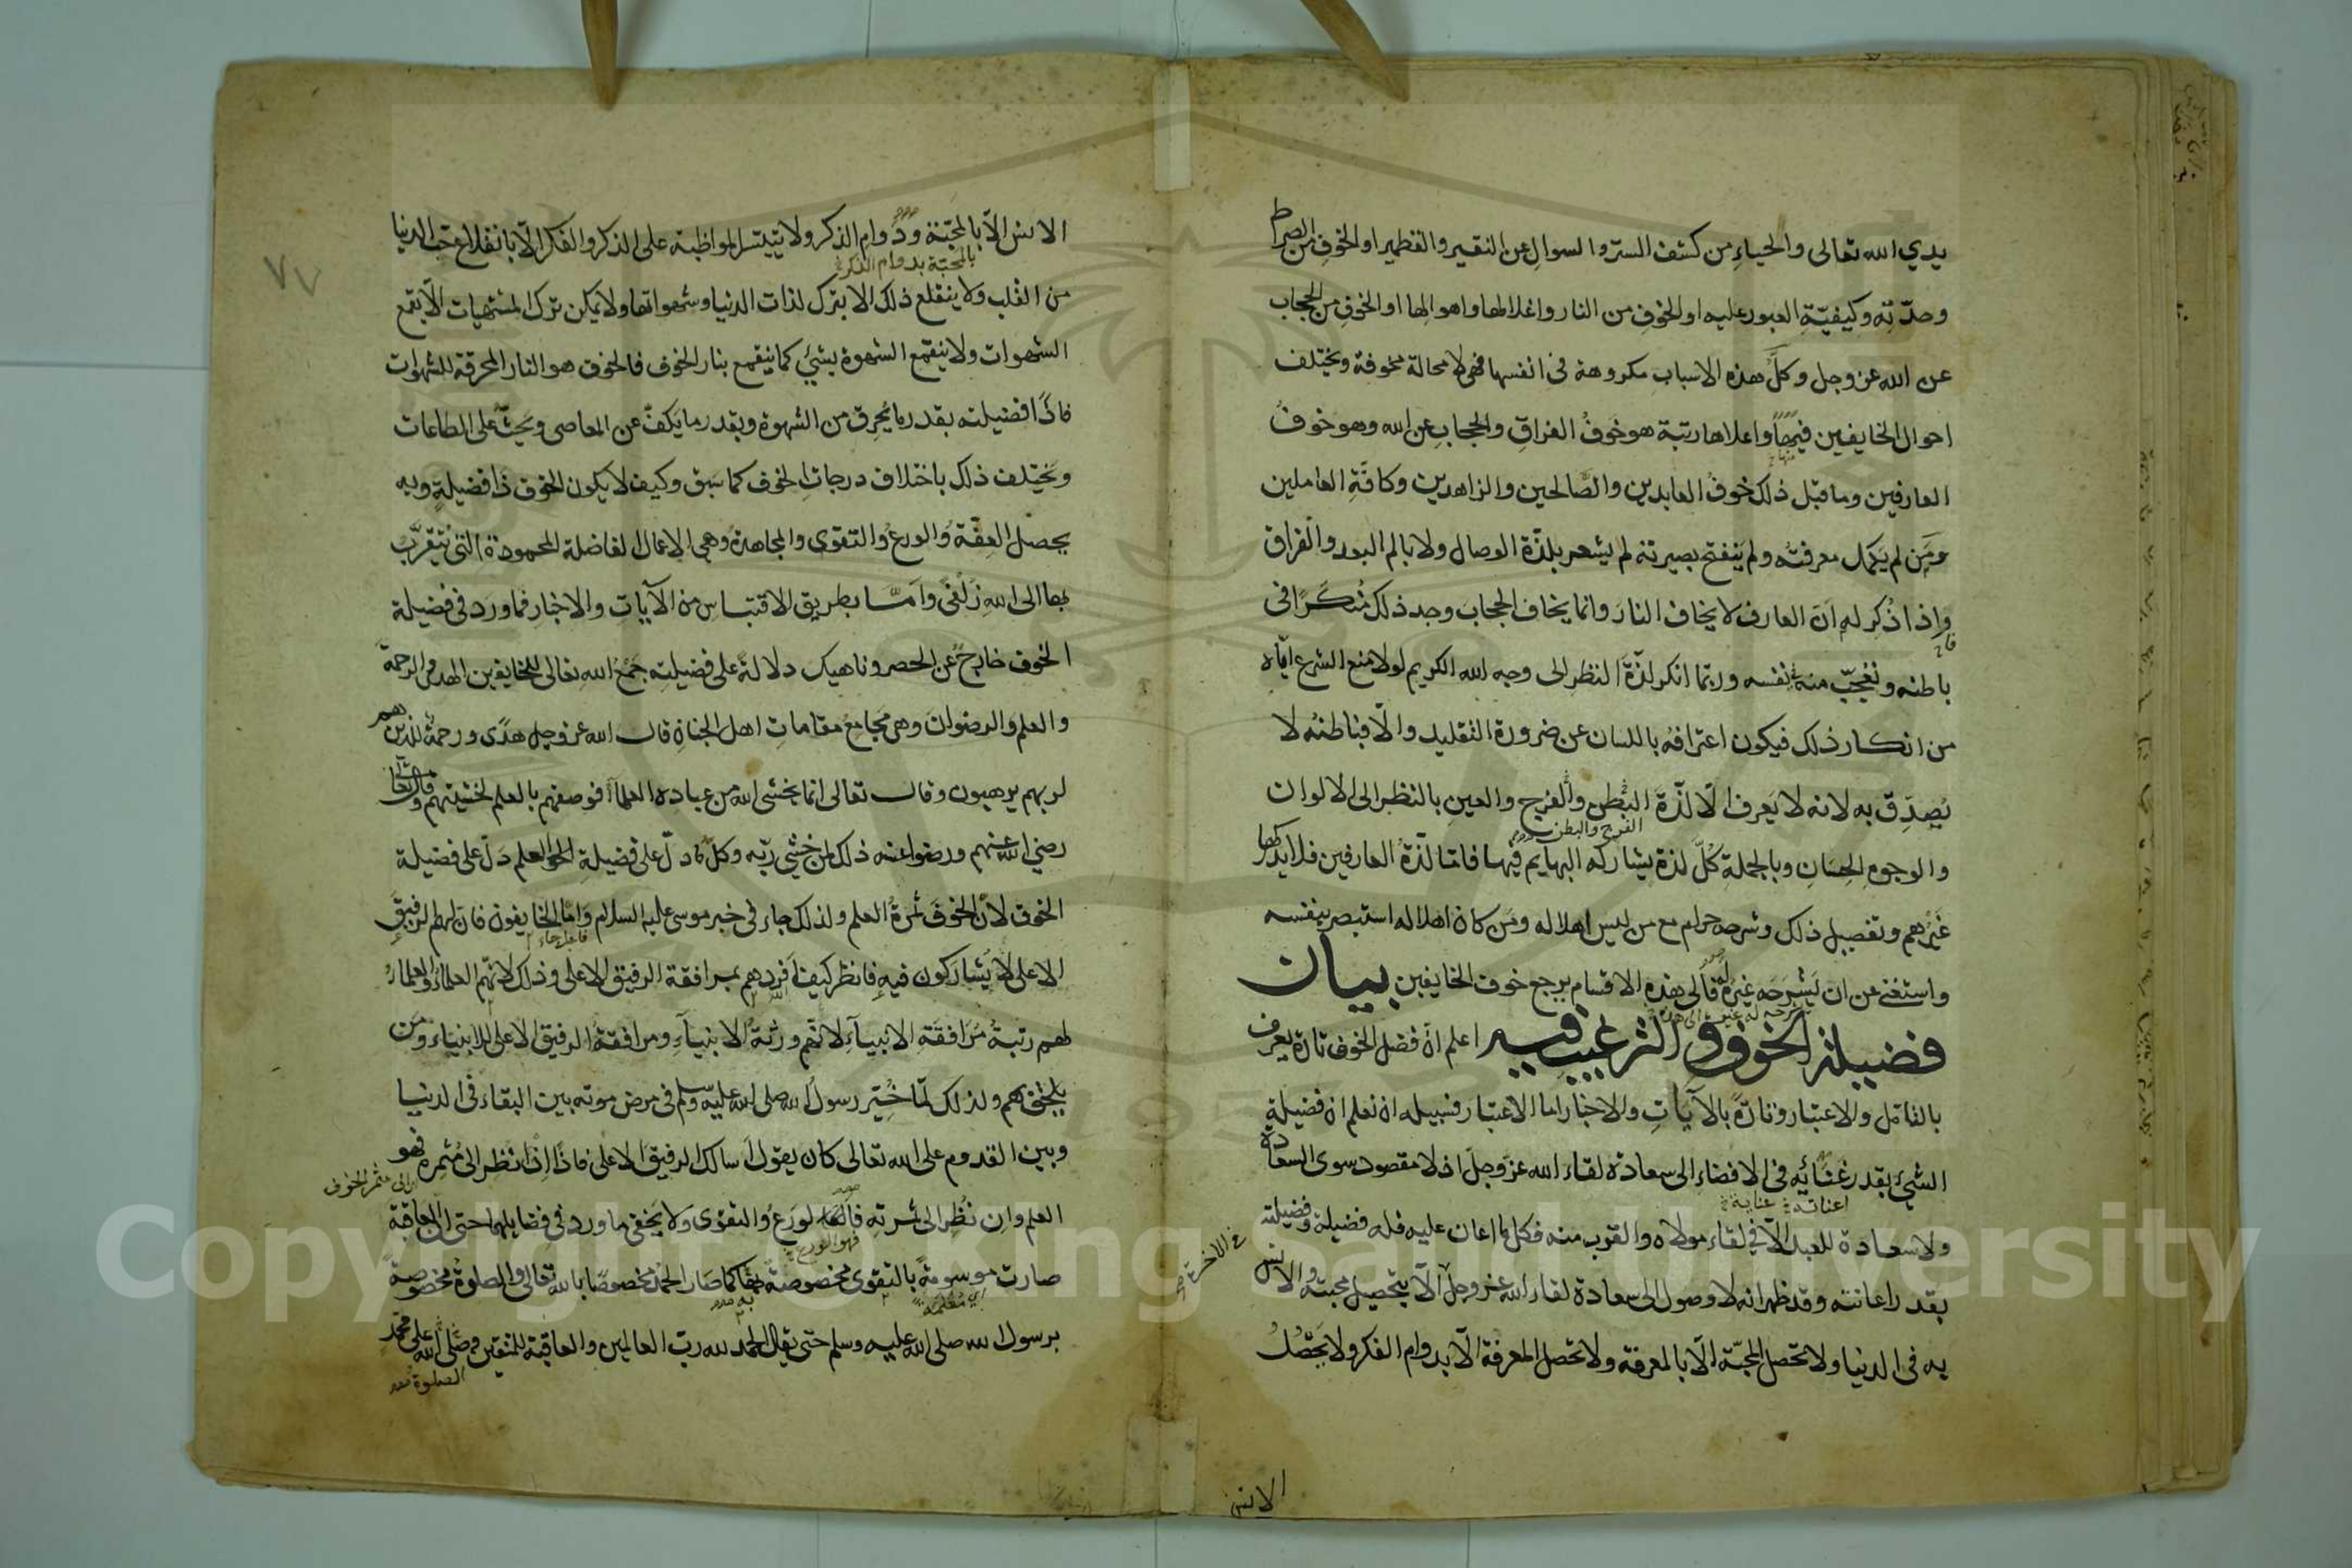 يدي الله تعالى والحياء من كشف الستر والسوال عن النقير والقطمير او الخوف من الصراط
وحدّته وكيفيّة العبور عليه او الخوف من النار واغلالها واهوالها او الخوف من الحجاب
عن الله عز وجل وكلّ هذه الاسباب مكروهة فى انفسها فهى لا محالة مخوفة ويختلف
احوال الخايفين فيها واعلاها رتبة هو خوف الفراق والحجاب عن الله وهو خوف
منها
العارفين وما قبل ذلك خوف العابدين والصّالحين والزاهدين وكافّة العاملين
ومَن لم يكمل معرفته ولم ينفتح بصيرته لم يشعر بلذّة الوصال ولا بالم البعد والفراق
واذا ذُكِر له اَنّ العارف لا يخاف النار وانما يخاف الحجاب وجد ذلك مُنكَرًا فى
باطنه وتعجّب منه فى نفسه وربّما انكر لذّة النظر الى وجه الله الكريم لولا منع الشرع ايّاه
من انكار ذلك فيكون اعترافه باللسان عن ضرورة التقليد والّا فباطنه لا
يُصدِّق به لانه لا يَعرف الّا لذّة البطن والفرج والعين بالنظر الى الالوان
الفرج والبطن
والوجوه الحِسَان وبالجملة كُلّ لذة يشاركه البهايم فيها فامّا لذّة العارفين فلا يدركها
غَيْرهم وتفصيل ذلك وشرحه حرام مع من ليس اهلا له ومَن كان اهلا له استبصر بنفسه
واستغنى عن ان يَشرَحَه غيره له فالى هذه الاقسام يرجع خوف الخايفين بيان
فضيلة الخوف والترغيب فيه اعلم انّ فضل الخوف تارة يعرف
بالتامّل والاعتبار وتارةً بالآيات والاخبار اما الاعتبار فسبيله ان تعلم ان فضيلة
الشيء بقدر غَنَائِه فى الافضاء الى سعادة لقاء الله عزّ وجلّ اذ لا مقصود سوى السعادة
اعانته عنايه
ولا سعادة للعبد الّا في لقاء مولاه والقرب منه فكل ما اعان عليه فله فضيلة وفضيلته
فى الاخرة
بقدر اعانته وقد ظهر انه لا وصول الى سعادة لقاء الله عز وجلّ الّا بتحصيل محبته والانس
به فى الدنيا ولا تحصل المحبّة الّا بالمعرفة ولا تحصل المعرفة الّا بدوام الفكر ولا يحصُلُ
الانس
٧٧
الانس الّا بالمحبّة ودوام الذكر ولا يتيسّر المواظبة على الذكر والفكر الّا بانقلاع حب الدنيا
بالمحبّة بدوام الفكر
من القلب ولا ينقلع ذلك الا بترك لذات الدنيا وشهواتها ولا يمكن ترك المشتهيات الّا بقمع
الشهوات ولا ينقمع الشهوة بشئ كما ينقمع بنار الخوف فالخوف هو النار المحرقة للشهوات
فاذًا فضيلته بقدر ما يُحرِق من الشهوة وبقدر ما يَكفّ عن المعاصى ويَحثّ على الطاعات
ويَختلف ذلك باختلاف درجات الخوف كما سَبق وكيف لا يكون الخوف ذا فضيلةٍ وبه
يحصل العِفّة والورع والتقوى والمجاهدة وهى الاعمال الفاضلة المحمودة التى يُتقرَّب
بها الى الله زُلْفىً وامّا بطريق الاقتباس من الآيات والاخبار فما ورد فى فضيلة
الخوف خارج عن الحصر وناهيك دلالةً على فضيلته جَمْعُ الله تعالى للخايفين الهدى والرحمة
والعلم والرضوان وهى مجامع مقامات اهل الجنان قال الله عز وجل هدًى ورحمة للذين هم
لربهم يرهبون وقال تعالى انما يخشى الله من عباده العلماء فوصفهم بالعلم لخشيتهم وقال تعالى
رضي الله عنهم ورضوا عنه ذلك لمن خشي ربّه وكلّ ما دلّ على فضيلة العلم دَلّ على فضيلة
الخوف لانّ الخوفَ ثمرةُ العلم ولذلك جاء فى خبر موسى عليه السلام وامّا الخايفون فان لهم الرفيق
فاعل جاء
الاعلى لا يُشاركون فيه فانظر كيف اَفردهم بمرافقة الرفيق الاعلى وذلك لانّهم العلماء والعلماءُ
لهم رتبةُ مُرَافقَةِ الانبيآءِ لانّهم ورثةُ الانبيآءِ ومرافقة الرفيق الاعلى للانبياء ومَن
يلحق بهم ولذلك لمّا خُيّر رسولُ الله صلى الله عليه وسلم فى مرض موته بين البقاء فى الدنيا
وبين القدوم على الله تعالى كان يقول اسالك الرفيقَ الاعلى فاذًا اِذَا نظر الى مُثمِره فهو
الى مثمر الخوف
العلم وان نُظِر الى ثمرته فالورع والتقوى ولا يَخفى ما ورد فى فضايلهما حتى انّ العاقبة
فهو الورع
صارت موسومةً بالتقوى مخصوصةً بها كما صَار الحمْدُ مخصوصًا بالله تعالى والصلوةُ مخصوصةً
اي مُعْلَمةً به
برسول الله صلى الله عليه وسلم حتى يقال الحمد لله ربّ العالمين والعاقبة للمتقين وصلّى الله على محمد
الصلوة
Copyright © King Saud University